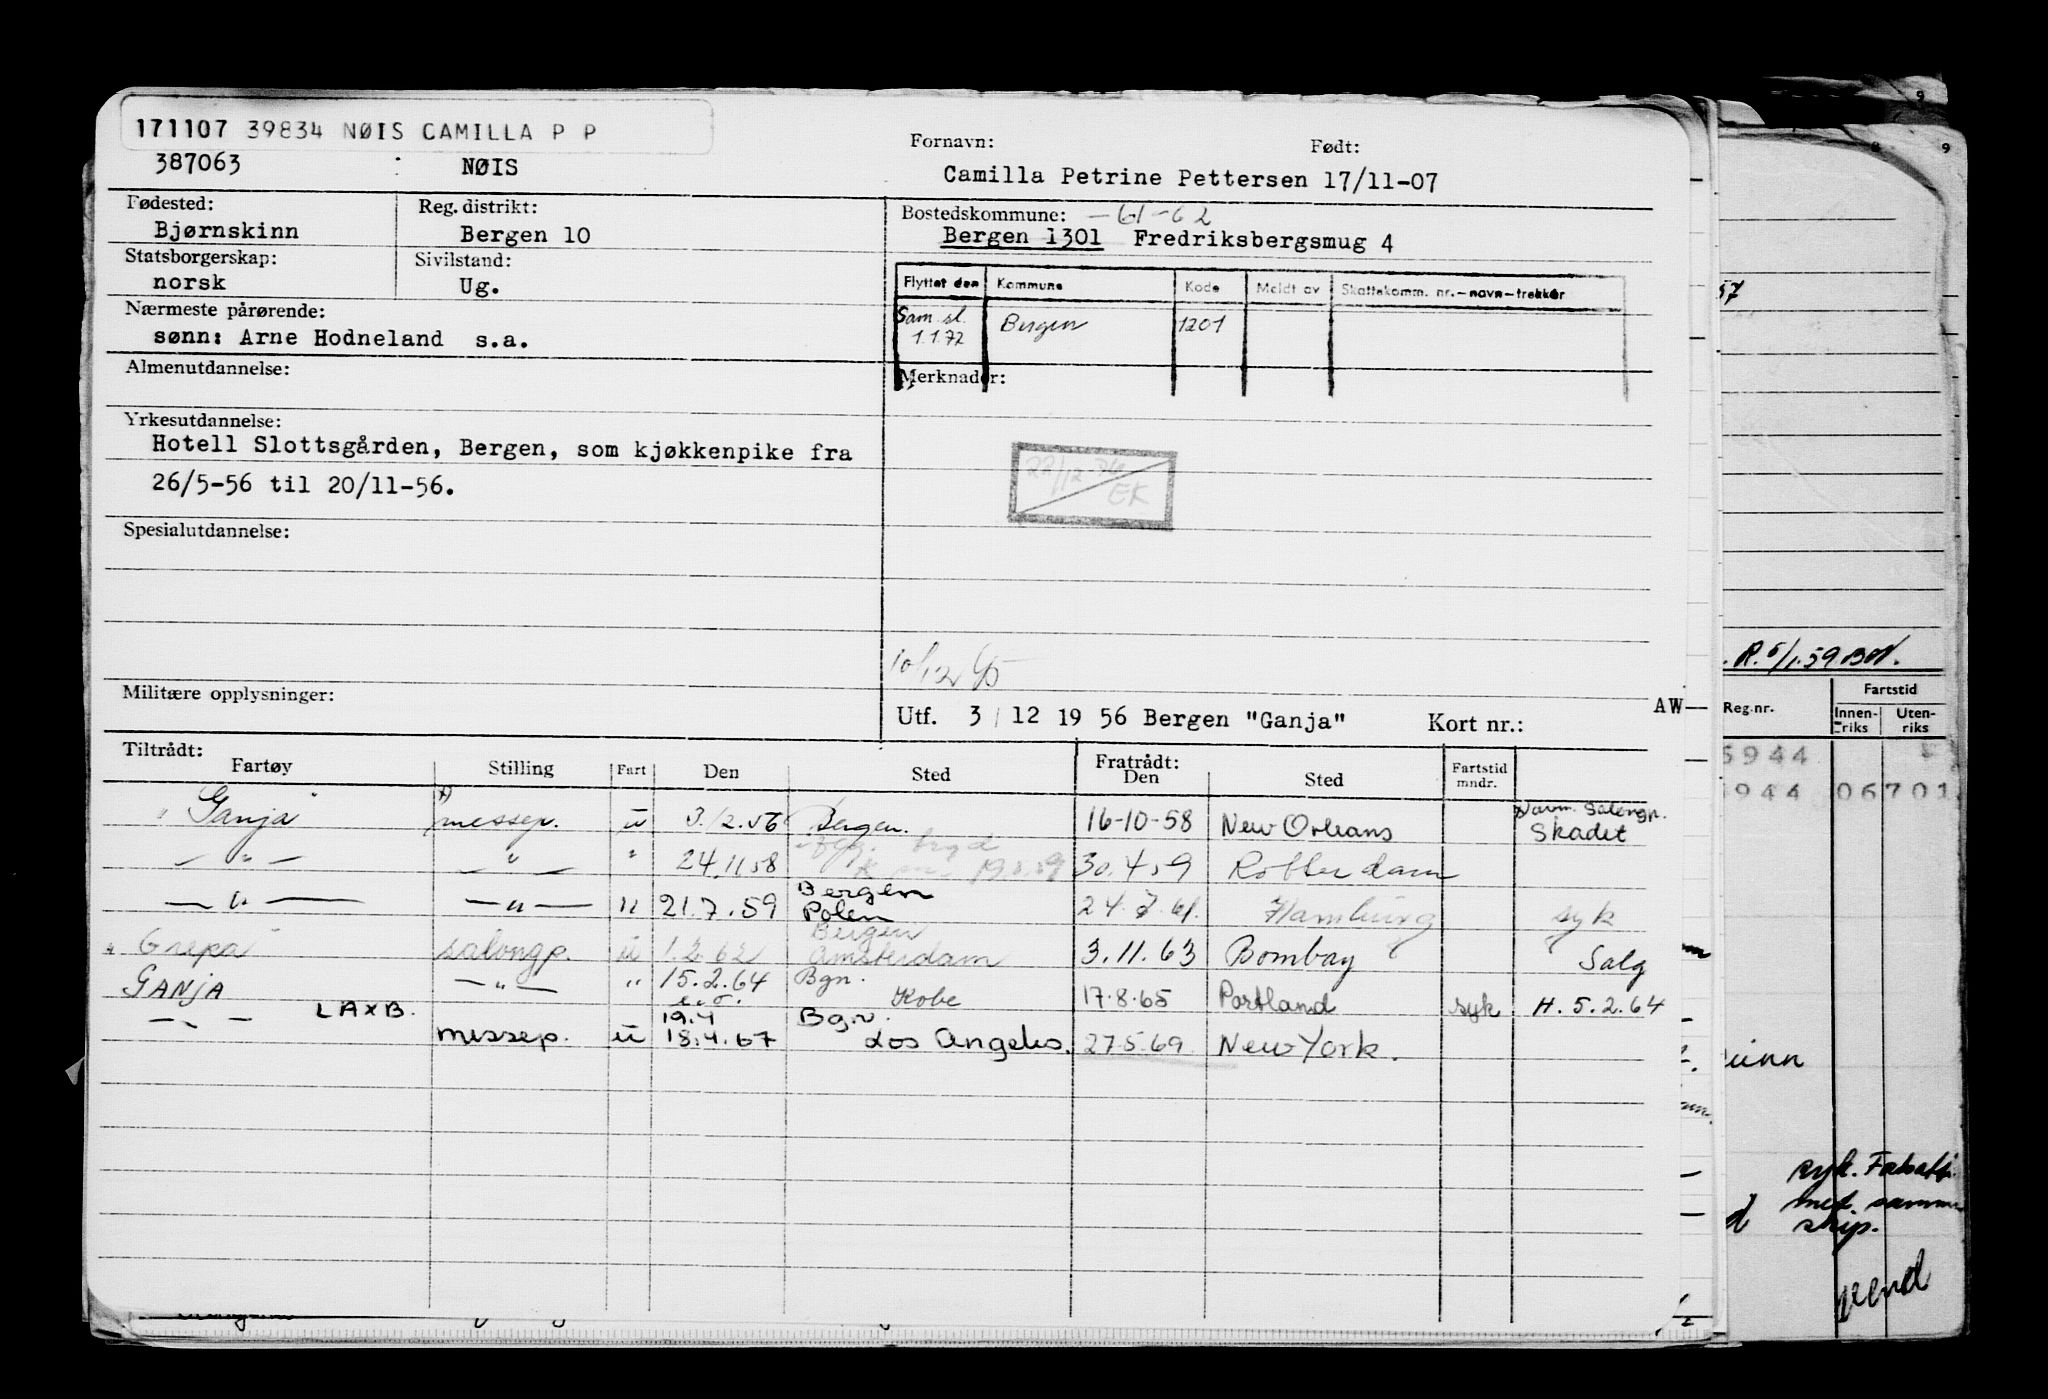 171107 39834 NØIS CAMILLA P P
387063 NØIS
Fornavn: Født:
Camilla Petrine Pettersen 17/11-07
Fødested: Reg. distrikt: Bostedskommune: -61-62
Bjørnskinn Bergen 10 Bergen 1301 Fredriksbergsmug 4
Statsborgerskap: Sivilstand:
norsk Ug.
Flyttet den Kommune Kode Meldt av Skattekomm. nr.-navn-trekkår
Sam. sl. 1.1.72 Bergen 1201
Nærmeste pårørende:
sønn: Arne Hodneland s.a.
Almenutdannelse: Merknader:
Yrkesutdannelse:
Hotell Slottsgården, Bergen, som kjøkkenpike fra
26/5-56 til 20/11-56.
22/12-76
EK
Spesialutdannelse:
10/12
Militære opplysninger:
Utf. 3/12 19 56 Bergen "Ganja" Kort nr.:
AW
Tiltrådt: Fratrådt:
Fartøy Stilling Fart Den Sted Den Sted Fartstid mndr.
"Ganja" messep. u 3/12.56 Bergen. 16-10-58 New Orleans Skadet
— " — — " — " 24.11.58 30.4.59 Rotterdam
— " — — " — " 21.7.59 Bergen Polen 24.7.61. Hamburg syk
"Grepa" salongp. u 1.2.62 Bergen Amsterdam 3.11.63 Bombay Salg
GANJA — " — " 15.2.64 Bgn. Kobe 17.8.65 Portland syk H. 5.2.64
— " — LAXB. messep. u 19.4 18.4.67 Bgn. Los Angeles. 27.5.69 New York.
57
. R. 5/1.59
Reg.nr. Fartstid
Innenriks Utenriks
5944
944 06701
syk.
med
skip.
vend